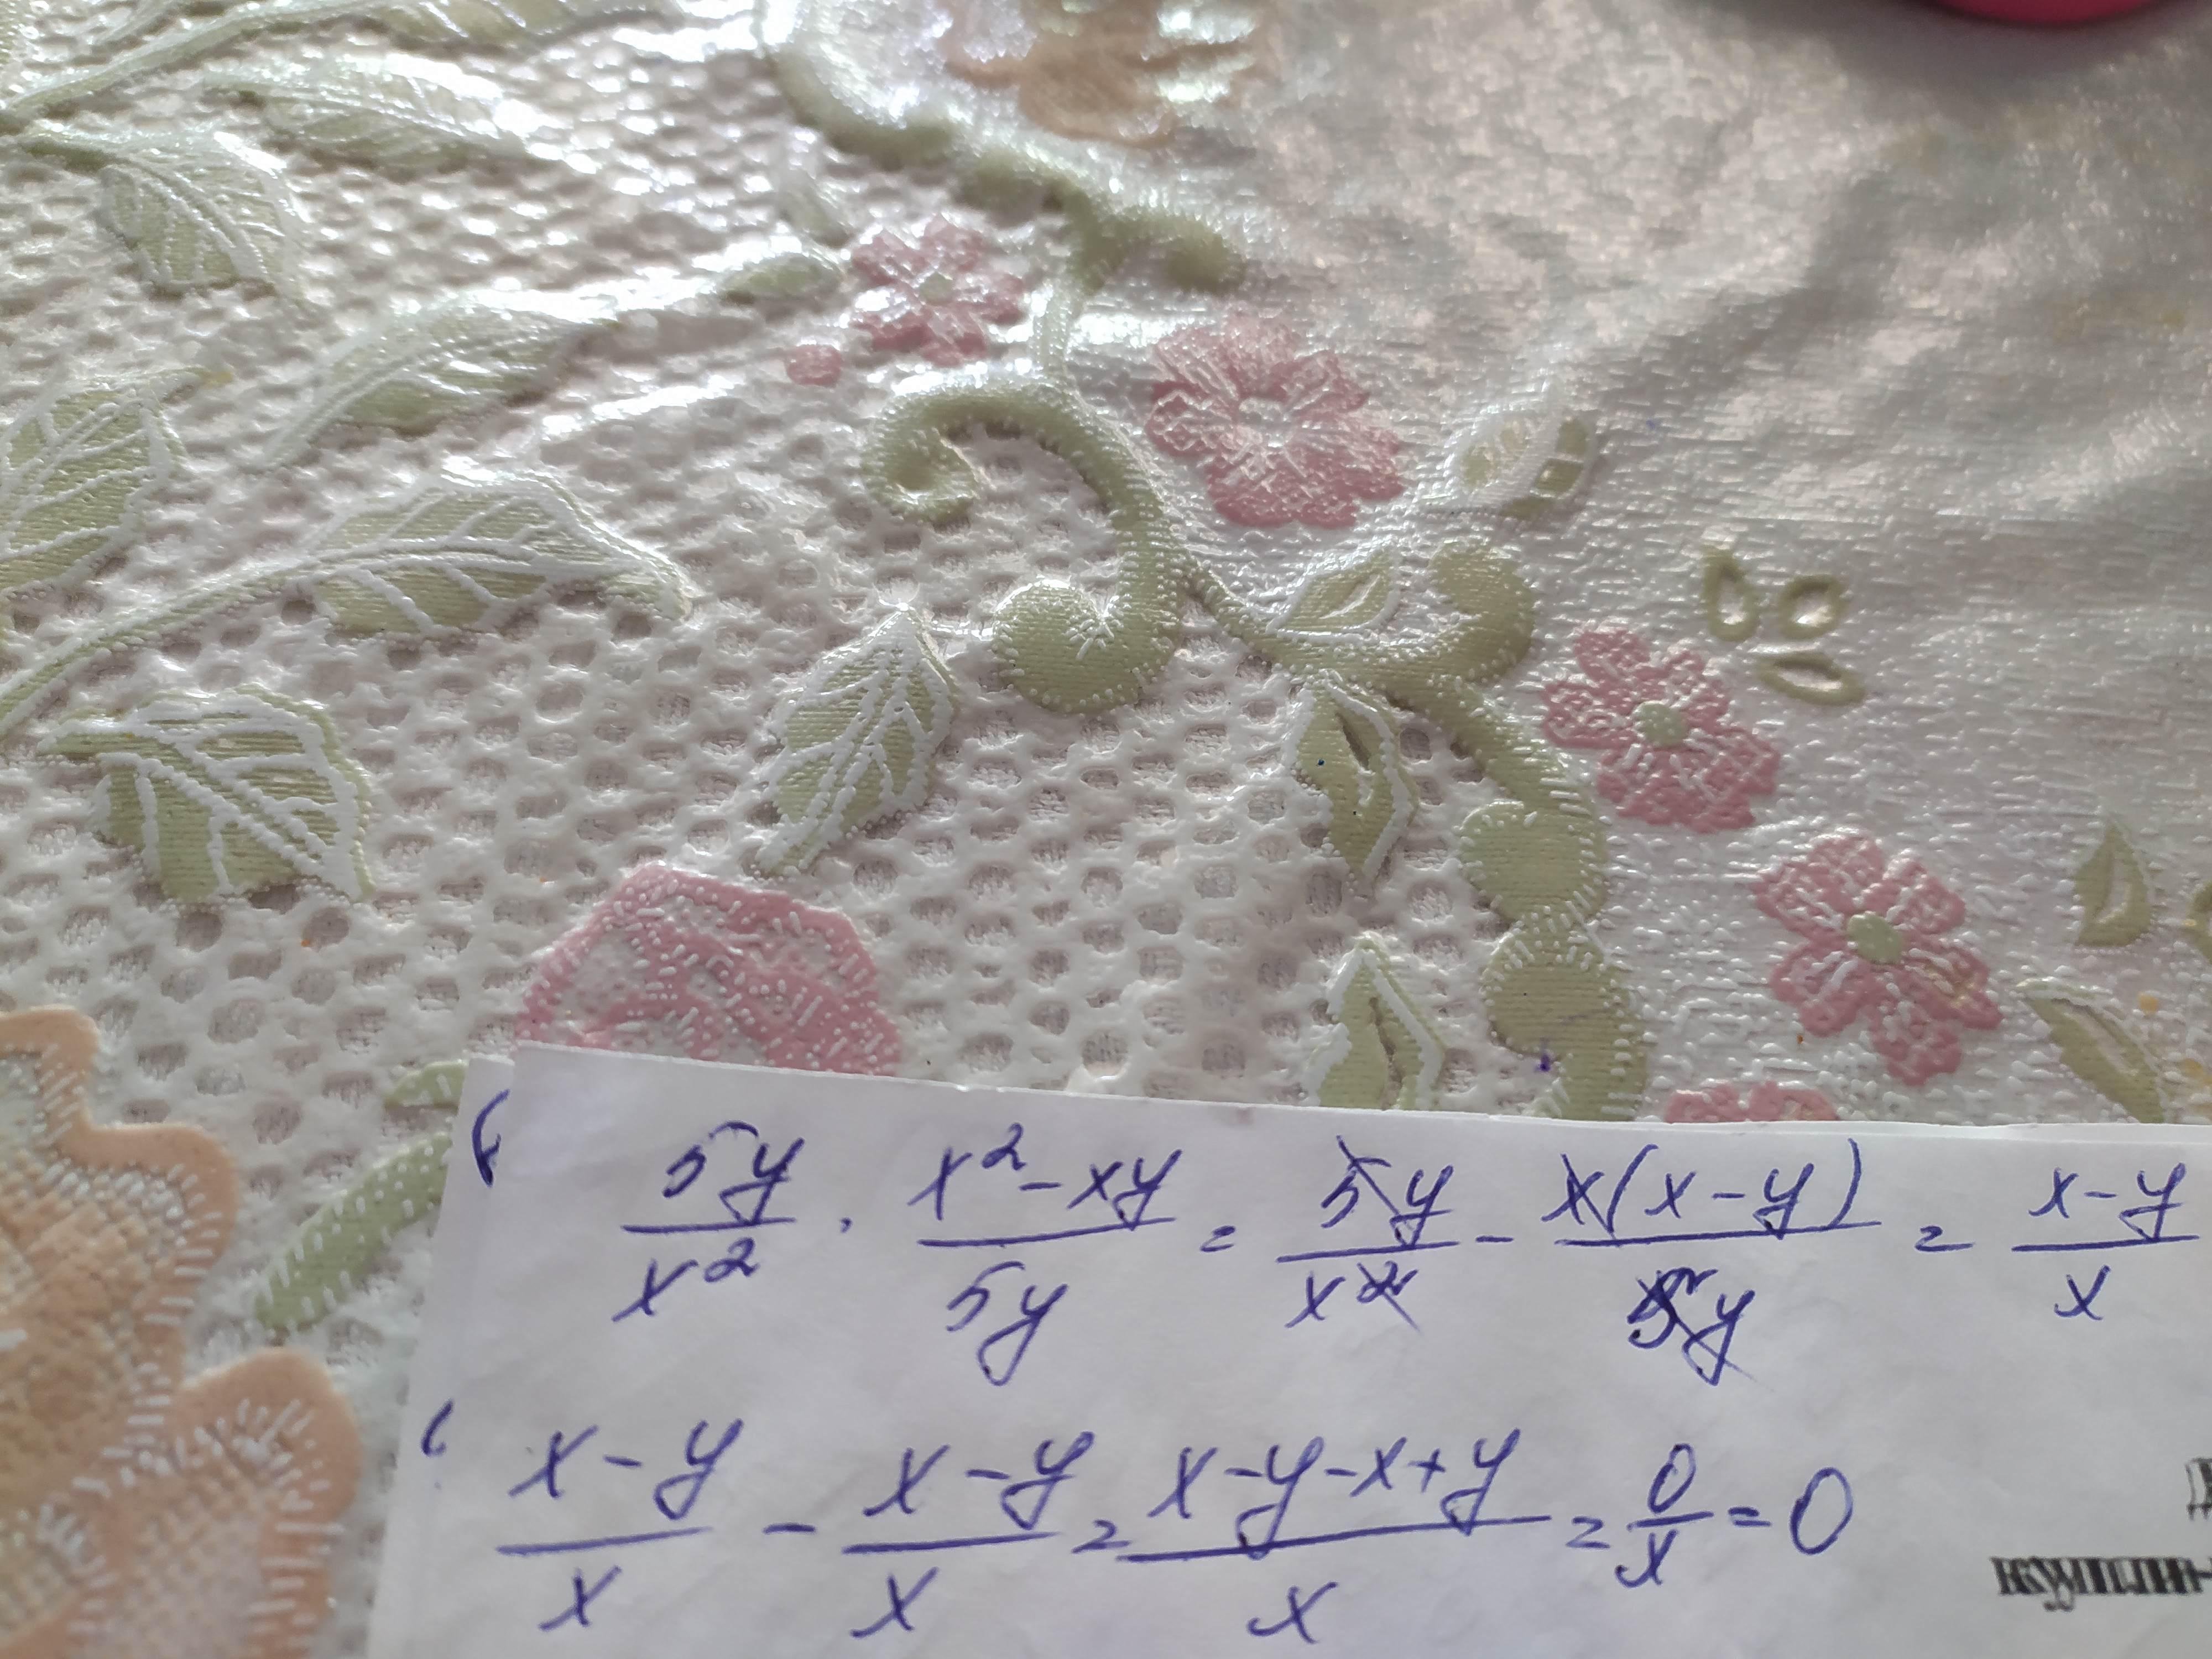 5y/x² · x²-xy/5y = 5y/x² - x(x-y)/5y = x-y/x
x-y/x - x-y/x = x-y-x+y/x = 0/x = 0